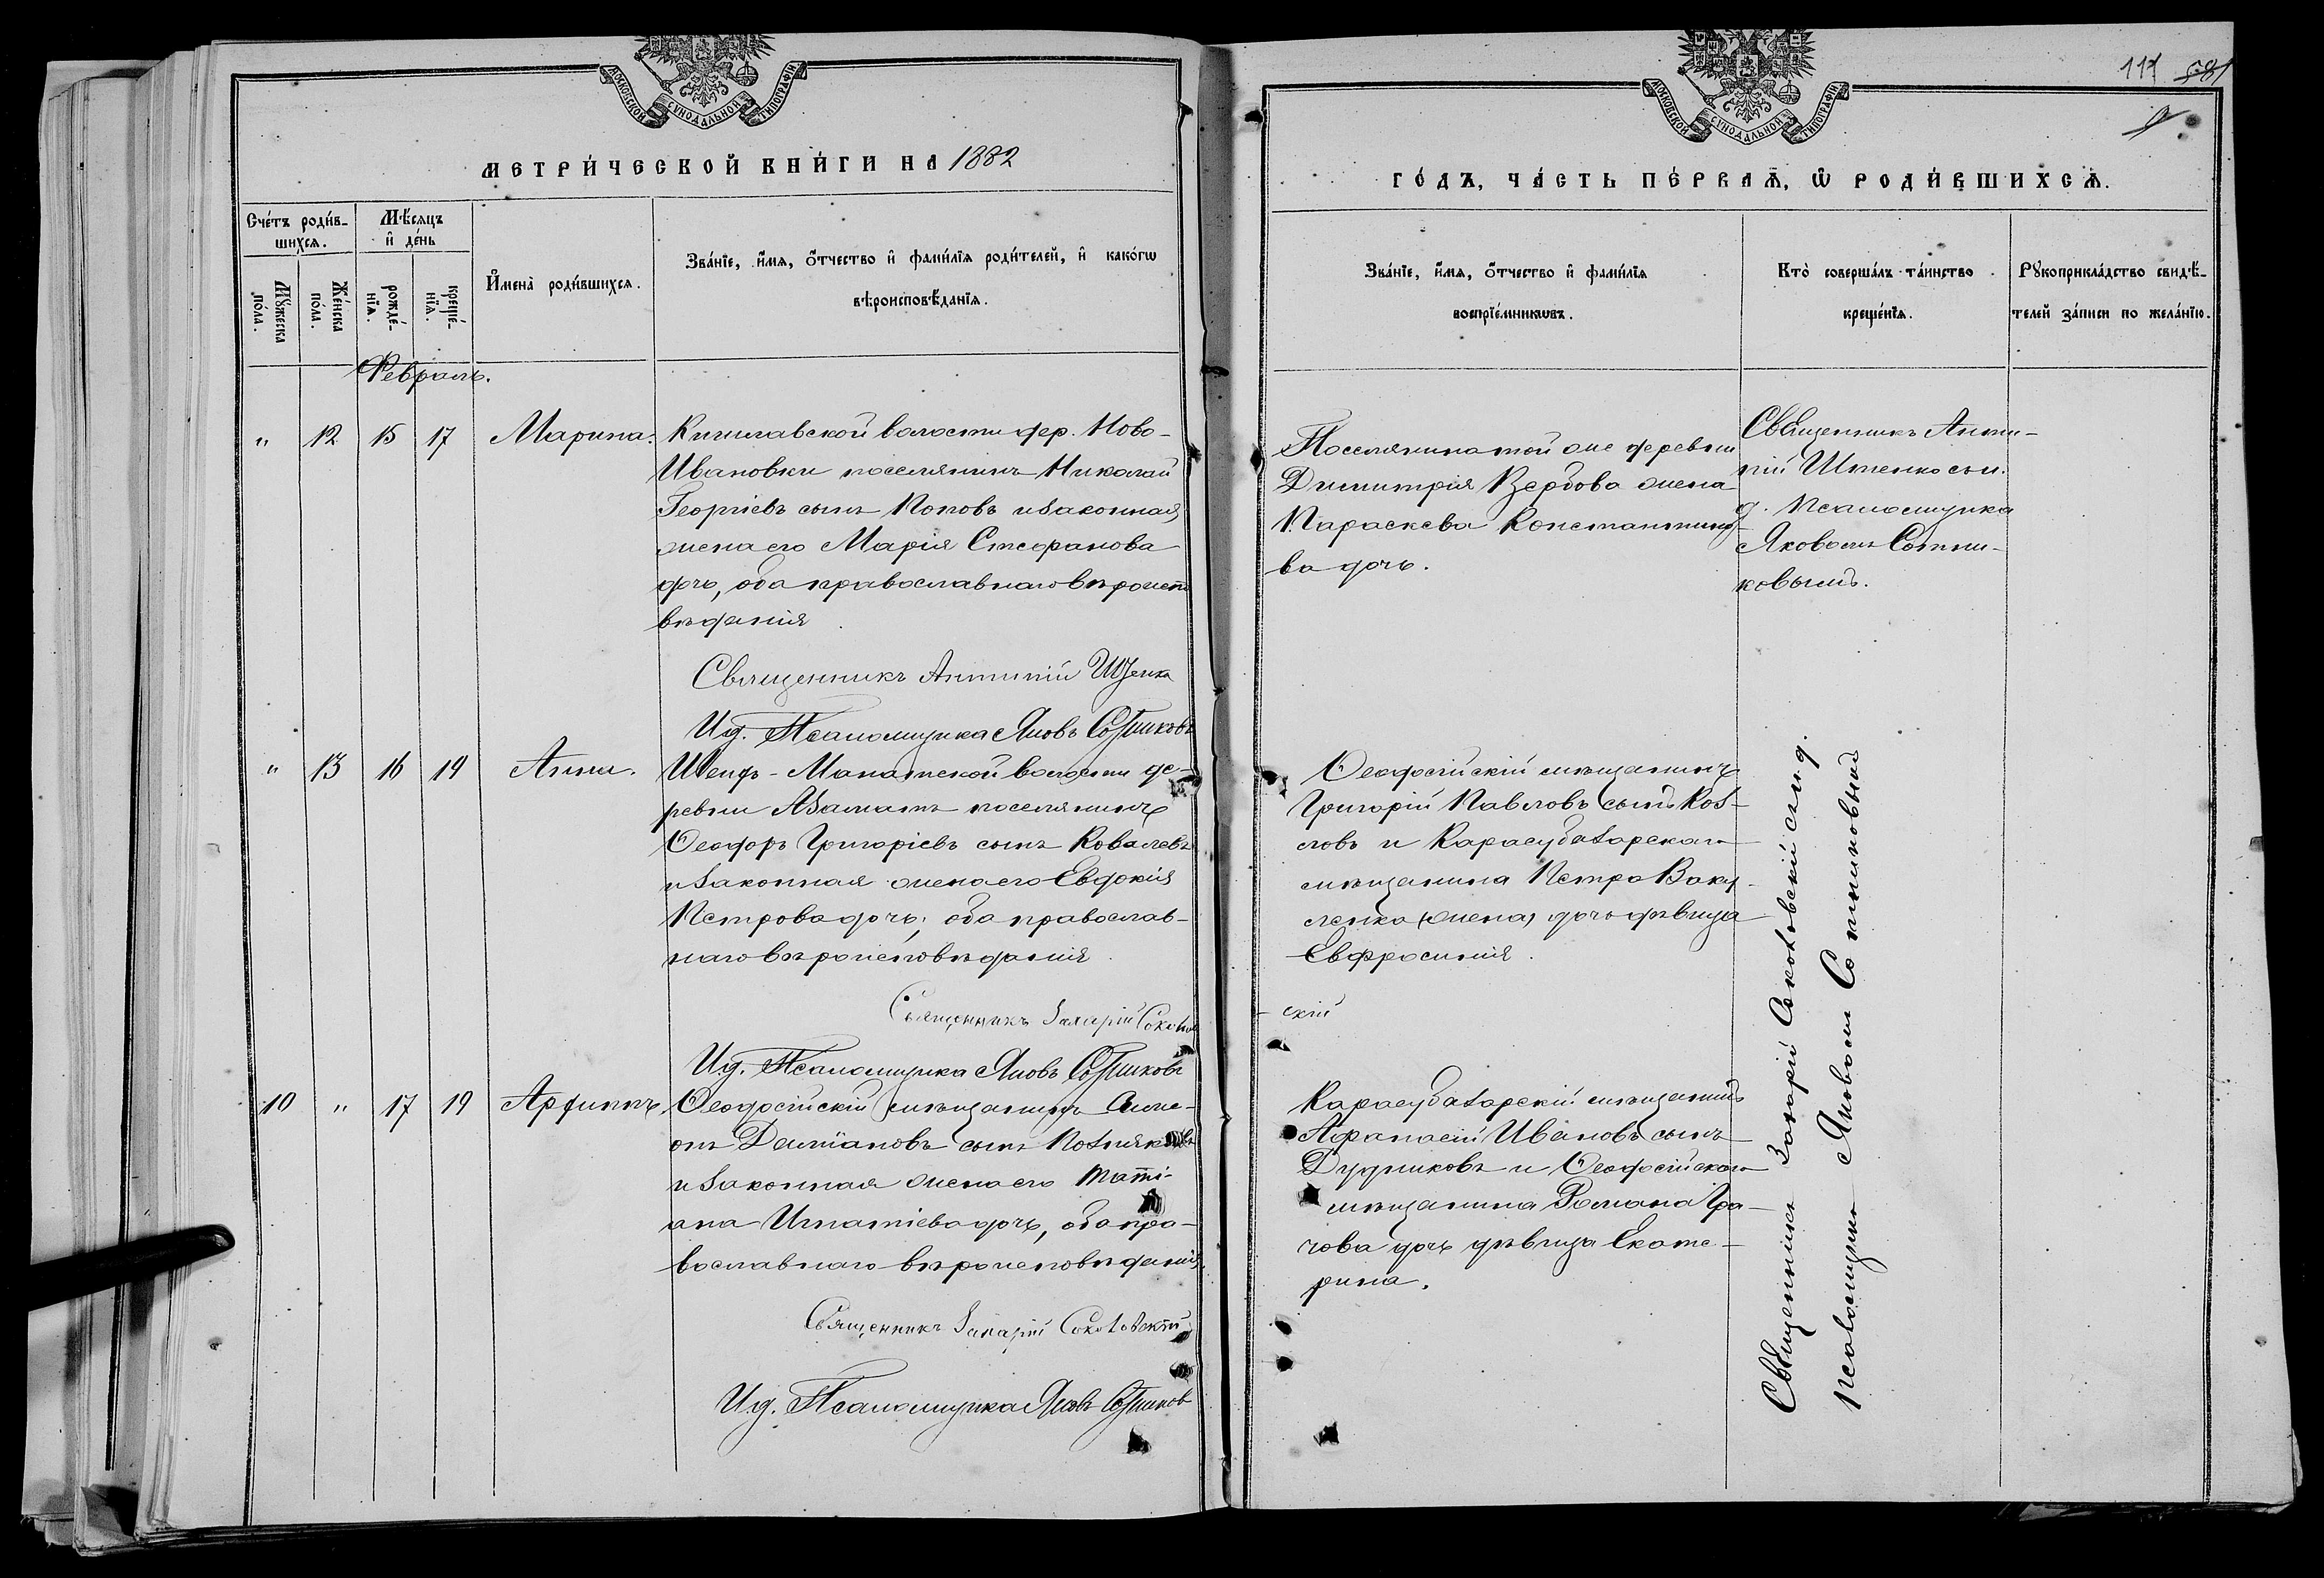 МОСКОВСКОЙ СУНОДАЛЬНОЙ ТИПОГРАФІИ
МЕТРИ́ЧЕСКОЙ КНИ́ГИ НА 1882
Сче́тъ роди́в-
шихся.
Мѣ́сяцъ
и҆ де́нь
Мꙋ́жеска
по́ла.
Же́нска
по́ла.
рожде́-
нїѧ.
креще́-
нїѧ.
И҆мена̀ роди́вшихся.
Зва́нїе, и҆́мѧ, ѻ҆́тчество и҆ фами́лїѧ роди́телей, и҆ како́гѡ
вѣроисповѣ́данїѧ.
Февраль.
" 12 15 17 Марина.
Кишлавской волости дер. Ново-
Ивановки поселянинъ Николай
Георгіевъ сынъ Поповъ и законная
жена его Марія Стефанова
дочь, оба православнаго вѣроиспо
вѣданія
Священникъ Антипій
Ид. Псаломщика Яковъ Сотников
" 13 16 19 Анна.
Шейх-Монатской волости де-
ревни Азаматъ поселянинъ
Ѳеодоръ Григоріевъ сынъ Ковалевъ
и законная жена его Евдокія
Петрова дочь, оба православ-
наго вѣроисповѣданія.
Священникъ Захарій Соколов
Ид. Псаломщика Яковъ Сотников
10 " 17 19
Ѳеодосійскій мѣщанинъ Симе-
онъ Даміановъ сынъ Позняковъ
и законная жена его Таті-
ана Игнатіева дочь, оба пра-
вославнаго вѣроисповѣданія.
Священникъ Захарій Соколовскій
Ид. Псаломщика Яковъ Сотников
111 581
МОСКОВСКОЙ СУНОДАЛЬНОЙ ТИПОГРАФІИ
ГО́ДЪ, ЧА́СТЬ ПЕ́РВАѦ, Ѽ РОДИ́ВШИХСѦ.
Зва́нїе, и҆́мѧ, ѻ҆́тчество и҆ фами́лїѧ
воспрїе́мникѡвъ.
Кто̀ соверша́лъ та́инство
креще́нїѧ.
Рꙋкоприкла́дство свидѣ́-
телей за́писи по жела́нїю.
Поселянина той же деревни
Димитрія Вербова жена
Параскева Константино-
ва дочь.
Священникъ Анти-
пій съ и.
д. Псаломщика
Яковомъ Сотни-
ковымъ.
Ѳеодосійскій мѣщанинъ
Григорій Павловъ сынъ Коз-
ловъ и Карасубазарскаго
мѣщанина Петра Ваку-
ленка (жена) дочь дѣвица
Евфросинія.
-скій
Карасубазарскій мѣщанинъ
Афанасій Ивановъ сынъ
Дудниковъ и Ѳеодосійскаго
мѣщанина Романа Гра-
чова дочь дѣвица Екате-
рина.
Священникъ Захарій Соколовскій съ и. д.
псаломщика Яковомъ Сотниковымъ